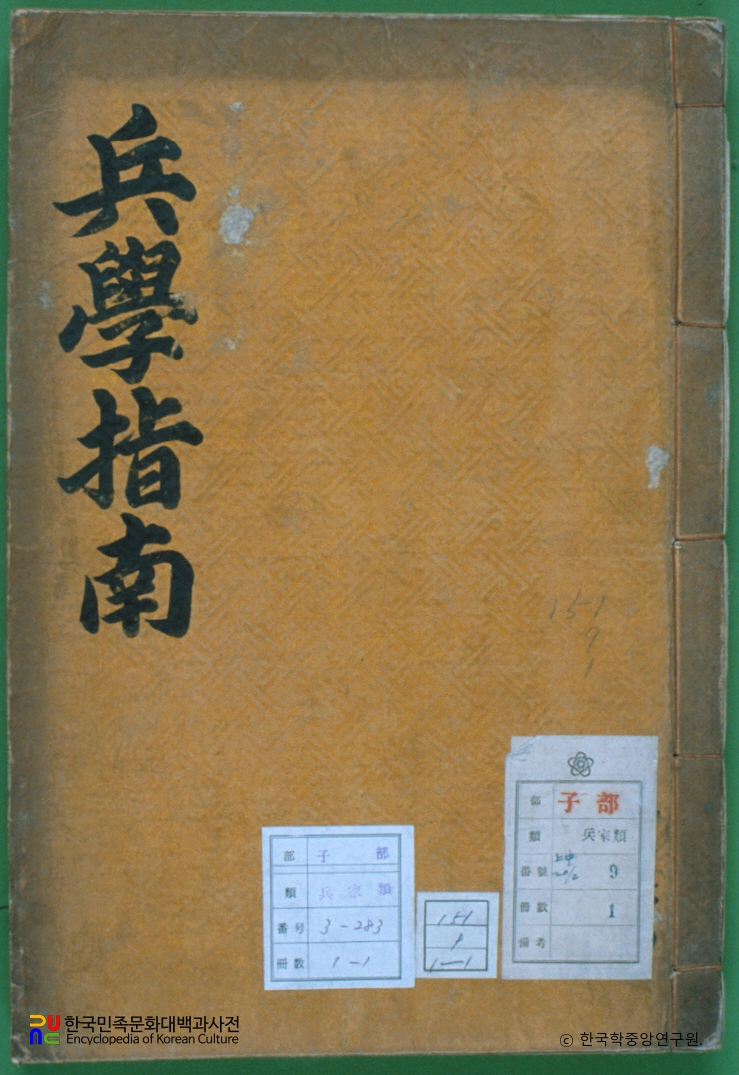 兵學指南
151
9
1
部 子部
類 兵家類
番號 9
冊數 1
備考
部 子部
類 兵家類
番号 3-283
冊數 1-1
151
9
1-1
한국민족문화대백과사전
Encyclopedia of Korean Culture
© 한국학중앙연구원.